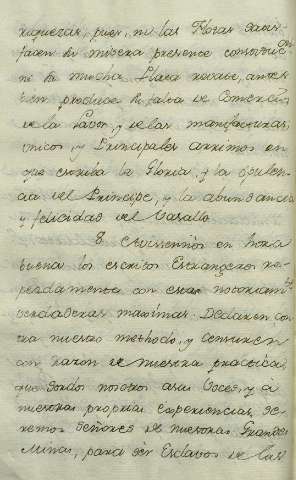 riquezas, pues, ni las Flotas satis-
facen la misera presente constitucion
ni la mucha Plata            , antes
bien produce la falta de Comercio
de la Labor, y de las manufacturas,
unicos, y Principales arrimos en
que estriba la Gloria, y la opulen-
cia del Principe, y la abundancia
y felicidad del Vasallo
8             en hora
buena los escritos Estrangeros re-
petidamente con estas notoriam.te
verdaderas maximas. Declaren con-
tra nuestro methodo, y censuren
con razon de nuestra practica,
que sordos nosotros a sus Voces, y a
nuestras propias experiencias, se-
remos Señores de nuestras Grandes
Minas, para ser Esclavos de las